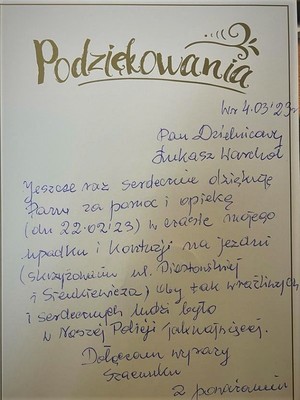 Podziękowania
Wr 4.03'23r
Pan Dzielnicowy
Łukasz Warchoł
Jeszcze raz serdecznie dziękuję
Panu za pomoc i opiekę
(dn 22.02.'23) w czasie mojego
upadku i kontuzji na jezdni
(skrzyżowaniu ul. Piastowskiej
i Sienkiewicza) Oby tak wrażliwych
i serdecznych ludzi było
w Naszej Policji jaknajwięcej.
Dołączam wyrazy
Szacunku
Z poważaniem